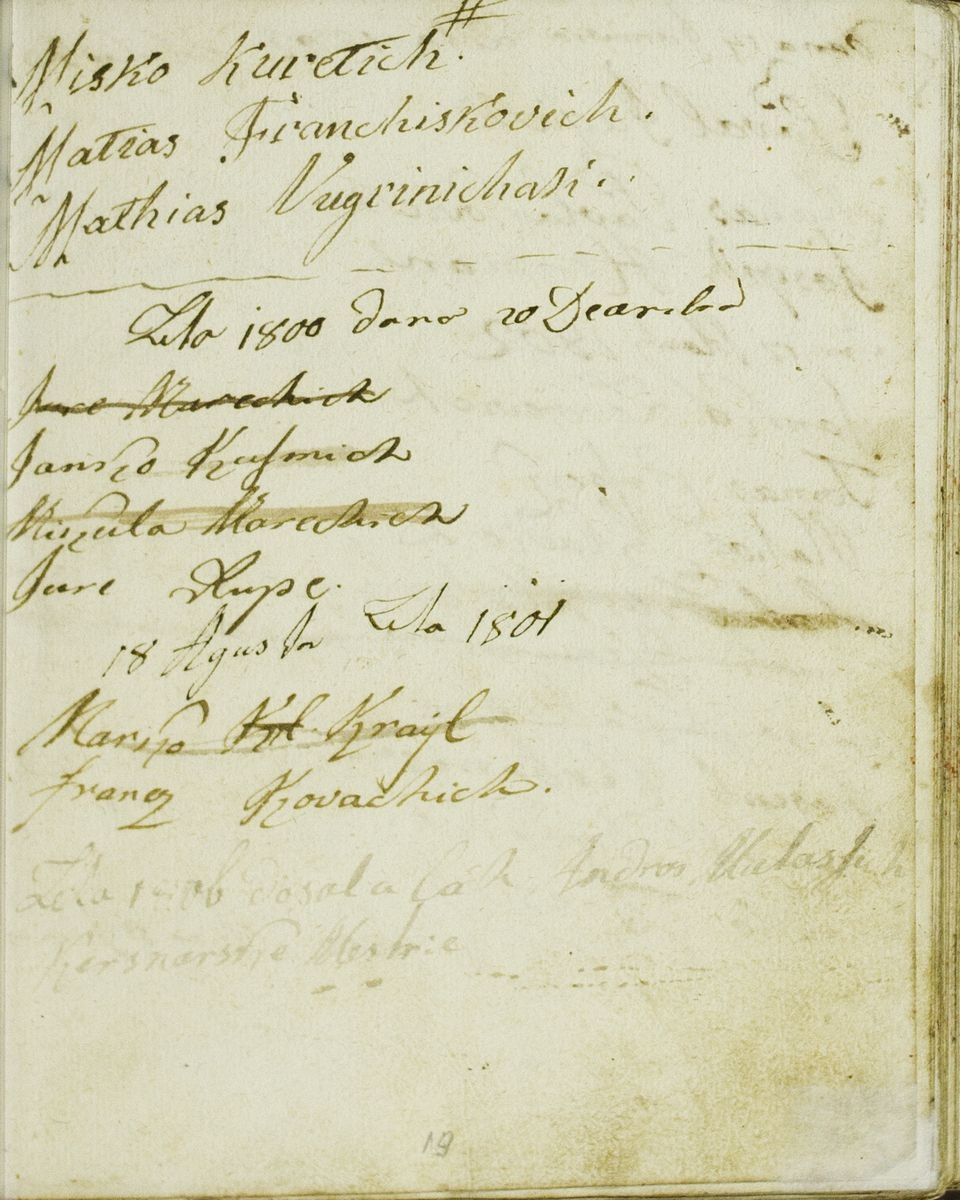 #
Misko Kuretich.
Matias Franchiskovich.
Mathias Vugrinichak.
Leta 1800 dana 20 Decembra
Jure Marechich
Jansko Kusmich
Mikula Marechich
Jure Rupe.
18 Agusta Leta 1801
Marko Kral Krayl
francz Kovachich.
Leta 1806 dosal a Cèh Andros
Kersnarske Mestrie
19